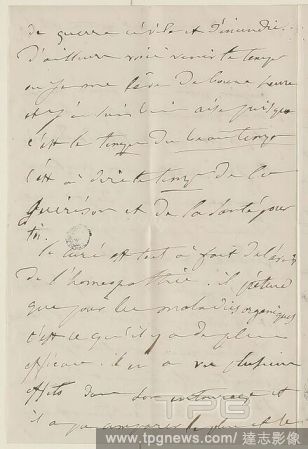 de guerre civile et d'incendie.
D'ailleurs voici venir le temps
où je me lève de bonne heure
et j'en suis bien aise puisque
c'est le temps du beau temps
c'est à dire le temps de la
guérison et de la santé pour
toi.
Le curé est tout à fait
de l'homéopathie. il prétend
que pour les maladies organiques
c'est ce qu'il y a de plus
efficace. il en a vu plusieurs
effets dans son entourage et
il a
TPG
www.tpgnews.com/達志影像